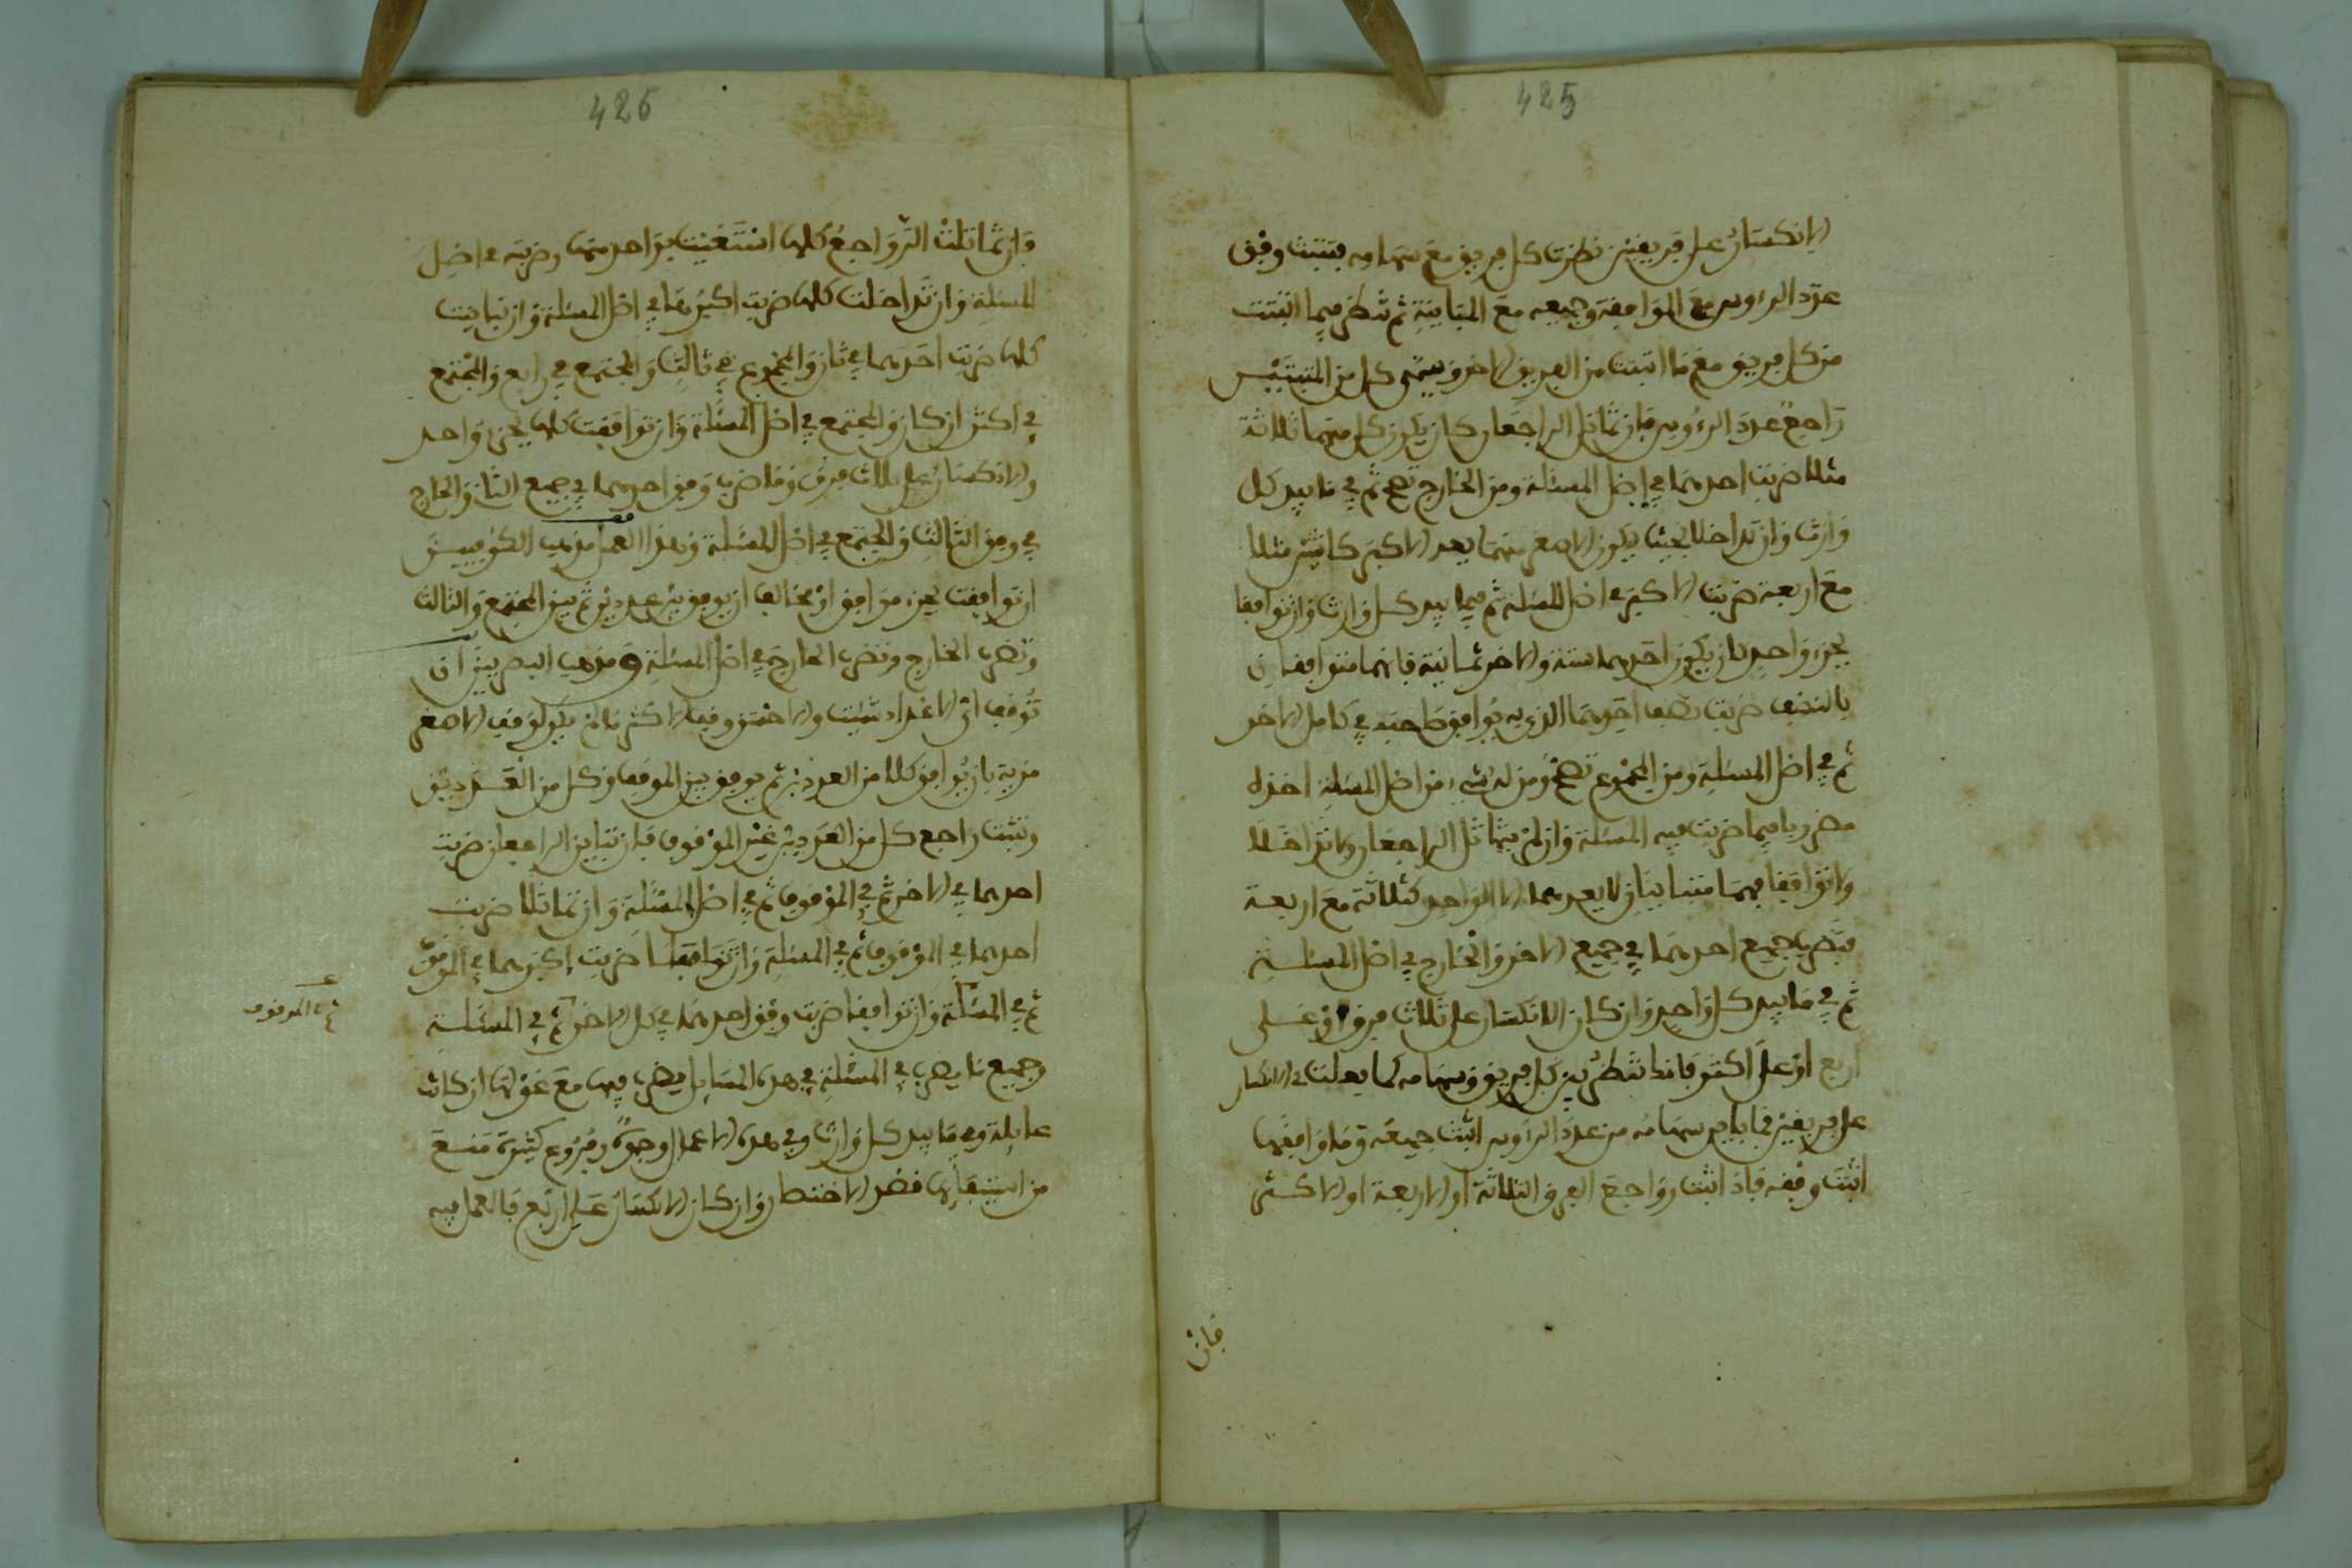 425
الانكسار على فريقين نظرت كل فريق مع سهامه فتثبت وفق
عدد الرءوس مع الموافقة وجميعه مع المباينة ثم تنظر فيما اثبتت
من كل فريق مع ما اثبتت من الفريق الاخر ويسمى كل من المثبتين
راجع عدد الرءوس فان تماثل الراجعان كان يكون كل منهما ثلاثة
مثلا ضربت احدهما في اصل المسئلة ومن الخارج تصح ثم في ما بيد كل
وارث وان تداخلا بحيث يكون الاصغر منهما يعد الاكبر كاثنين مثلا
مع اربعة ضربت الاكبر في اصل المسئلة ثم فيما بيد كل وارث وان توافقا
بجزء واحد كان يكون احدهما ستة والاخر ثمانية فانهما متوافقان
بالنصف ضربت نصف احدهما الذي به يوافق صاحبه في كامل الاخر
ثم في اصل المسئلة ومن المجموع تصح ومن له شيء من اصل المسئلة اخذه
مضروبا فيما ضربت فيه المسئلة وان لم يتماثل الراجعان ولا تداخلا
ولا توافقا فهما متباينان لا يعدهما الا الواحد كثلاثة مع اربعة
فتضرب جميع احدهما في جميع الاخر والخارج في اصل المسئلة
ثم في ما بيد كل واحد وان كان الانكسار على ثلاث فرق او على
اربع او على اكثر فانك تنظر بين كل فريق وسهامه كما فعلت في الانكسار
على فريقين فما باين سهامه من عدد الرءوس اثبت جميعه وما وافقها
اثبت وفقه فاذا اثبت رواجع الفرق الثلاثة او الاربعة او الاكثر
فان
426
وان تماثلت الرواجع كلها استغنيت بواحد منها وضربته في اصل
المسئلة وان تداخلت كلها ضربت اكبرها في اصل المسئلة وان تباينت
كلها ضربت احدهما في ثان والمجموع في ثالث والمجتمع في رابع والمجتمع
في اكثر ان كان والمجتمع في اصل المسئلة وان توافقت كلها بجزء واحد
والانكسار على ثلاث فرق وما ضرب وفق احدهما في جميع الثاني والخارج
في وفق الثالث والمجتمع في اصل المسئلة وهذا العمل مذهب الكوفيين
ان توافقت بجزء موافق او مخالف ان يوفق بين عددين ثم بين المجتمع والثالث
وتضرب الخارج وتضرب الخارج في اصل المسئلة ومذهب البصريين ان
توقف اي الاعداد شئت والاحسن وقف الاكثر ما لم يكن لوقف الاصغر
مزية بان يوافق كلا من العددين ثم يوفق بين الموقوف وكل من العددين
وتثبت راجع كل من العددين غير الموقوف فان تباين الراجعان ضربت
احدهما في الاخر ثم في الموقوف ثم في اصل المسئلة وان تماثلا ضربت
احدهما في الموقوف ثم في المسئلة وان تداخلا ضربت اكبرهما في الموقوف
ثم في المسئلة وان توافقا ضربت وفق احدهما في كل الاخر ثم في المسئلة
ثم في الموقوف
وجميع ما يضرب في المسئلة في هذه المسايل يضرب فيها مع عولها ان كانت
عايلة وفي ما بيد كل وارث وفي هذه الاعمال وجوه وفروع كثيرة منع
من استيفائها قصد الاختصار وان كان الانكسار على اربع فالعمل فيه